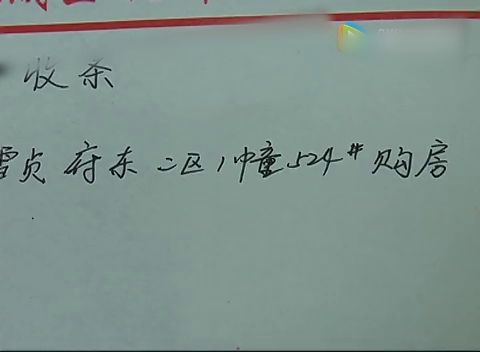 收条
雪贞 府东 二区 1幢 524# 购房